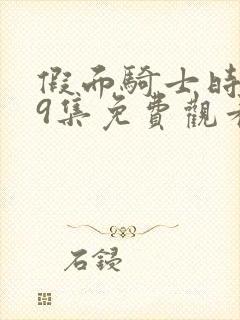 假面騎士時
9集免費觀看
石鋟